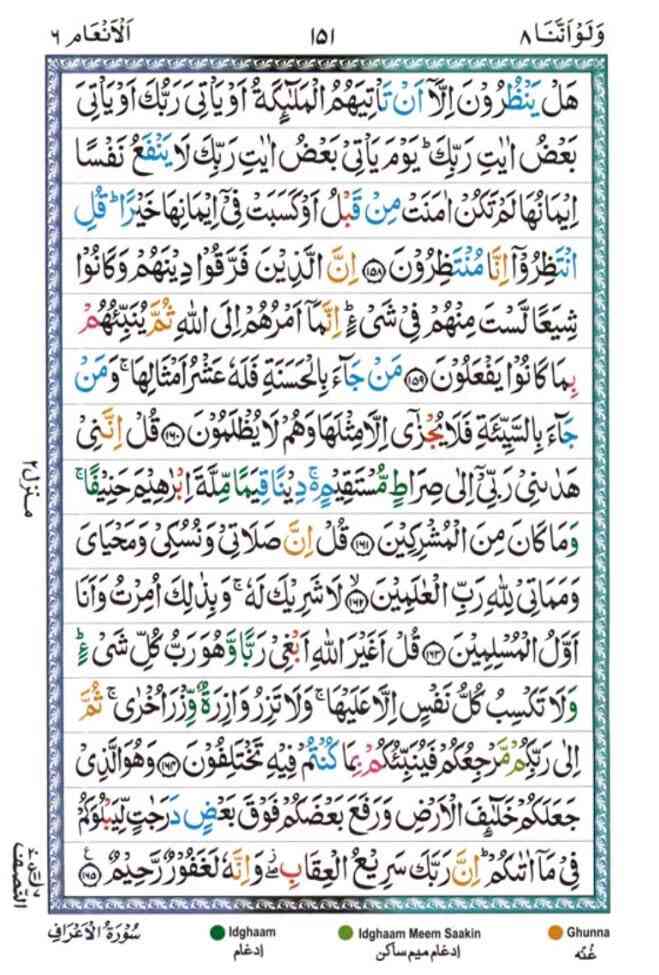 وَلَوْ اَنَّنَا ٨
١٥١
اَلْاَنْعَام ٦
هَلْ يَنْظُرُوْنَ اِلَّاۤ اَنْ تَاْتِيَهُمُ الْمَلٰٓئِكَةُ اَوْ يَاْتِىَ رَبُّكَ اَوْ يَاْتِىَ
بَعْضُ اٰيٰتِ رَبِّكَ ؕ يَوْمَ يَاْتِىْ بَعْضُ اٰيٰتِ رَبِّكَ لَا يَنْفَعُ نَفْسًا
اِيْمَانُهَا لَمْ تَكُنْ اٰمَنَتْ مِنْ قَبْلُ اَوْ كَسَبَتْ فِىْۤ اِيْمَانِهَا خَيْرًا ؕ قُلِ
انْتَظِرُوْۤا اِنَّا مُنْتَظِرُوْنَ ﴿١٥٨﴾ اِنَّ الَّذِيْنَ فَرَّقُوْا دِيْنَهُمْ وَكَانُوْا
شِيَعًا لَّسْتَ مِنْهُمْ فِىْ شَىْءٍ ؕ اِنَّمَاۤ اَمْرُهُمْ اِلَى اللّٰهِ ثُمَّ يُنَبِّئُهُمْ
بِمَا كَانُوْا يَفْعَلُوْنَ ﴿١٥٩﴾ مَنْ جَآءَ بِالْحَسَنَةِ فَلَهٗ عَشْرُ اَمْثَالِهَا ۚ وَمَنْ
جَآءَ بِالسَّيِّئَةِ فَلَا يُجْزٰٓى اِلَّا مِثْلَهَا وَهُمْ لَا يُظْلَمُوْنَ ﴿١٦٠﴾ قُلْ اِنَّنِىْ
هَدٰىنِىْ رَبِّىْۤ اِلٰى صِرَاطٍ مُّسْتَقِيْمٍ ۚ۬ دِيْنًا قِيَمًا مِّلَّةَ اِبْرٰهِيْمَ حَنِيْفًا ۚ
وَمَا كَانَ مِنَ الْمُشْرِكِيْنَ ﴿١٦١﴾ قُلْ اِنَّ صَلَاتِىْ وَنُسُكِىْ وَمَحْيَاىَ
وَمَمَاتِىْ لِلّٰهِ رَبِّ الْعٰلَمِيْنَ ۙ﴿١٦٢﴾ لَا شَرِيْكَ لَهٗ ۚ وَبِذٰلِكَ اُمِرْتُ وَاَنَا
اَوَّلُ الْمُسْلِمِيْنَ ﴿١٦٣﴾ قُلْ اَغَيْرَ اللّٰهِ اَبْغِىْ رَبًّا وَّهُوَ رَبُّ كُلِّ شَىْءٍ ؕ
وَلَا تَكْسِبُ كُلُّ نَفْسٍ اِلَّا عَلَيْهَا ۚ وَلَا تَزِرُ وَازِرَةٌ وِّزْرَ اُخْرٰى ۚ ثُمَّ
اِلٰى رَبِّكُمْ مَّرْجِعُكُمْ فَيُنَبِّئُكُمْ بِمَا كُنْتُمْ فِيْهِ تَخْتَلِفُوْنَ ﴿١٦٤﴾ وَهُوَ الَّذِىْ
جَعَلَكُمْ خَلٰٓئِفَ الْاَرْضِ وَرَفَعَ بَعْضَكُمْ فَوْقَ بَعْضٍ دَرَجٰتٍ لِّيَبْلُوَكُمْ
فِىْ مَاۤ اٰتٰٮكُمْ ؕ اِنَّ رَبَّكَ سَرِيْعُ الْعِقَابِ ۖ٘ وَاِنَّهٗ لَغَفُوْرٌ رَّحِيْمٌ ﴿١٦٥﴾ ع
منزل ٢
النصف
سُوْرَةُ الْاَعْرَافِ
Idghaam
ادغام
Idghaam Meem Saakin
ادغام ميم ساكن
Ghunna
غُنّه